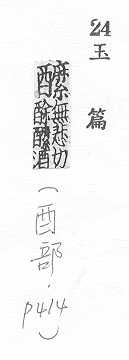 24 玉篇
醾無悲切
酴醾酒
(酉部·p414)